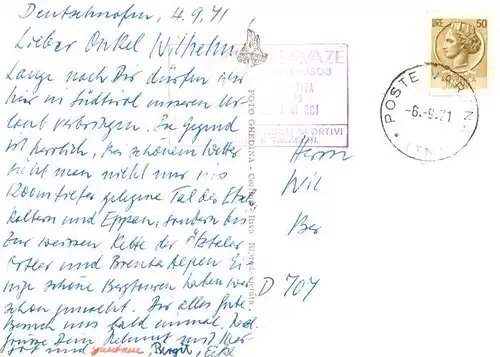 Deutschnofen, 4.9.71
Lieber Onkel Wilhelm,
Lange nach Dir dürfen wir
hier in Südtirol unseren Ur-
laub verbringen. Die Gegend
ist herrlich, bei schönem Wetter
sieht man nicht nur ins
1200m tiefer gelegene Tal der Etsch
Kaltern und Eppan, sondern bis
zur weissen Kette der Ötztaler
Ortler und Brenta Alpen. Ei-
nige schöne Bergtouren haben wir
schon gemacht. Dir alles Gute
Besuch uns bald einmal. Herzl.
Grüsse Dein Helmut mit
und Birgit, Eike
FOTO GHEDINA
LAVAZE
1808
SPORTIVI
LIRE 50
POSTE VAR
-6.-9.71
Herrn
Wil
Ber
D 704